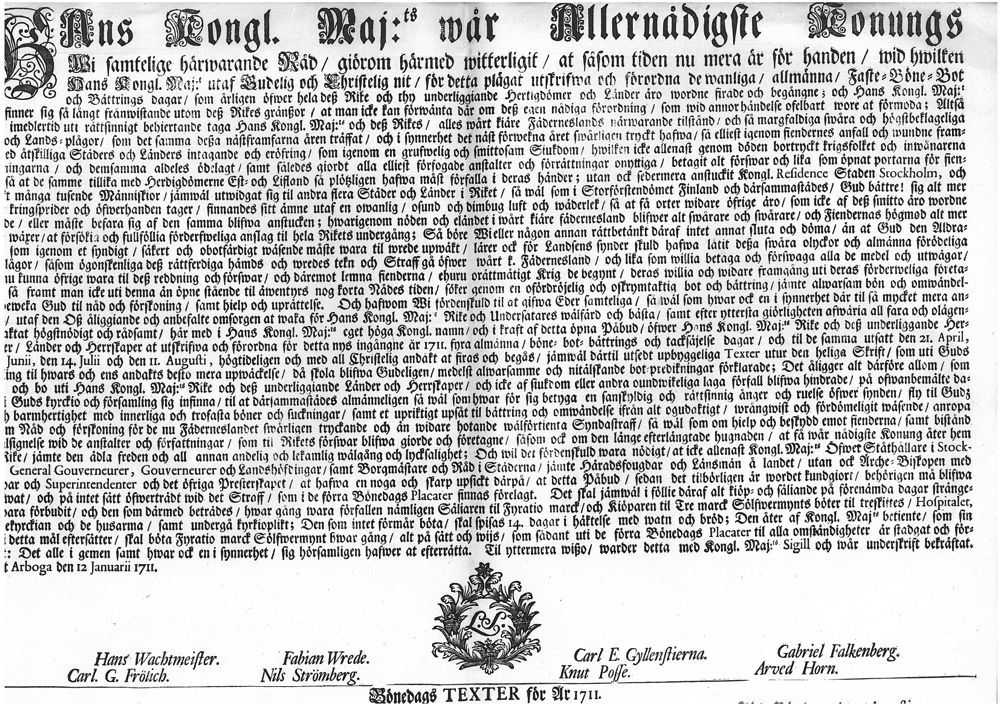 HAns Kongl. Maj:ts wår Allernådigste Konungs
Wi samtelige härwarande Råd / giörom härmed witterligit / at såsom tiden nu mera är för handen / wid hwilken
Hans Kongl. Maj:t utaf Gudelig och Christelig nit / för detta plägat utskrifwa och förordna de wanliga / allmänna / Faste-Böne-Bot
och Bättrings dagar / som årligen öfwer hela deß Rike och thy underliggiande Hertigdömer och Länder äro wordne firade och begångne; och Hans Kongl. Maj:t
finner sig så långt frånwistande utom deß Rikes gräntzor / at man icke kan förwänta där om deß egen nådiga förordning / som wid annor händelse ofelbart wore at förmoda; Altså
imedlertid uti rättsinnigt behiertande taga Hans Kongl. Maj:ts och deß Rikes / alles wårt kiäre Fäderneslands närwarande tilstånd / och så margfaldiga swåra och högstbeklageliga
och Lands-plågor / som det samma deßa nästframfarna åren träffat / och i synnerhet det näst förwekna året swårligen tryckt hafwa / så elliest igenom fiendernes anfall och wundne fram-
ed åtskilliga Städers och Länders intagande och eröfring / som igenom en grufwelig och smittosam Siukdom / hwilken icke allenast genom döden bortryckt krigsfolket och inwånarena
ningarna / och demsamma aldeles ödelagt / samt således giordt alla elliest förfogade anstalter och förrättningar onyttiga / betagit alt förswar och lika som öpnat portarna för fien-
så at de samme tillika med Hertigdömerne Est- och Lifland så plötzligen hafwa måst förfalla i deras händer; utan ock sedermera anstuckit Kongl. Residence Staden Stockholm, och
t många tusende Människior / jämwäl utwidgat sig til andra flera Städer och Länder i Riket / så wäl som i Storförstendömet Finland och därsammastädes / Gud bättre! sig alt mer
kringsprider och öfwerhanden tager / finnandes sitt ämne utaf en owanlig / osund och dimbug luft och wäderlek / så at få orter widare öfrige äro / som icke af deß smitto äro wordne
de / eller måste befara sig af den samma blifwa anstucken; hwarigenom nöden och eländet i wårt kiäre fädernesland blifwer alt swårare och swårare / och Fiendernas högmod alt mer
wäxer / at försökia och fullföllia förderfweliga anslag til hela Rikets undergång; Så böre Wi eller någon annan rättbetänkt däraf intet annat sluta och döma / än at Gud den Aldra-
som igenom et syndigt / säkert och obotfärdigt wäsende måste wara til wrede upwäkt / lärer ock för Landsens synder skuld hafwa låtit deßa swåra olyckor och almänna förödeliga
lågor / såsom ögonskenliga deß rättferdiga hämds och wredes tekn och Straff gå öfwer wårt k. Fädernesland / och lika som willia betaga och förswaga alla de medel och utwägar /
nu kunna öfrige wara til deß reddning och förswar / och däremot lemna fienderna / ehuru orättmätigt Krig de begynt / deras willia och widare framgång uti deras förderweliga företa-
så framt man icke uti denna än öpne stående til äwentyrs nog korta Nådes tiden / söker genom en ofördröjelig och oskrymtaktig bot och bättring / jämte alwarsam bön och omwändel-
eweka Gud til nåd och förskoning / samt hjelp och uprättelse. Och hafwom Wi fördenskuld til at gifwa Eder samteliga / så wäl som hwar ock en i synnerhet där til så mycket mera an-
/ utaf den Oß åliggiande och anbefalte omsorgen at waka för Hans Kongl. Maj:ts Rike och Undersåtares wälfärd och bästa / samt efter yttersta giörligheten afwäria all fara och olägen-
aktat högstnödigt och rådsamt / här med i Hans Kongl. Maj:ts eget höga Kongl. namn / och i kraft af detta öpna Påbud / öfwer Hans Kongl. Maj:ts Rike och deß underliggande Her-
r / Länder och Herrskaper at utskrifwa och förordna för detta nys ingångne år 1711. fyra almänna / böne- bot- bättrings och tacksäjelse dagar / och til de samma utsatt den 21. April,
Junii, den 14. Julii och den 11. Augusti, högtideligen och med all Christelig andakt at firas och begås / jämwäl därtil utsedt upbyggeliga Texter utur den heliga Skrift / som uti Guds
ing til hwars och ens andakts desto mera upwäckelse / då skola blifwa Gudeligen / medelst alwarsamme och nitälskande bot-predikningar förklarade; Det åligger alt därföre allom / som
och bo uti Hans Kongl. Maj:ts Rike och deß underliggiande Länder och Herrskaper / och icke af siukdom eller andra oundwikeliga laga förfall blifwa hindrade / på ofwanbemälte da-
i Guds kyrckio och församling sig infinna / til at därsammastädes almänneligen så wäl som hwar för sig betyga en sanskyldig och rättsinnig ånger och ruelse öfwer synden / fly til Gudz
h barmhertighet med innerliga och trofasta böner och suckningar / samt et upriktigt upsåt til bättring och omwändelse ifrån alt ogudaktigt / wrångwist och fördömeligt wäsende / anropa
m Nåd och förskoning för de nu Fäderneslandet swårligen tryckande och än widare hotande wälförtienta Syndastraff / så wäl som om hielp och beskydd emot fienderna / samt bistånd
lsignelse wid de anstalter och författningar / som til Rikets förswar blifwa giorde och företagne / såsom ock om den länge efterlängtade hugnaden / at få wår nådigste Konung åter hem
Rike / jämte den ädla freden och all annan andelig och lekamlig wälgång och lycksalighet; Och wil det fördenskuld wara nödigt / at icke allenast Kongl. Maj:ts Öfwer Ståthållare i Stock-
General Gouverneurer, Gouverneurer och Landshöfdingar / samt Borgmästare och Råd i Städerna / jämte Häradsfougdar och Länsmän å landet / utan ock Ärche-Biskopen med
par och Superintendenter och det öfriga Presterskapet / at hafwa en noga och skarp upsickt därpå / at detta Påbud / sedan det tilbörligen är wordet kundgiort / behörigen må blifwa
wat / och på intet sätt öfwerträdt wid det Straff / som i de förra Bönedags Placater finnas förelagt. Det skal jämwäl i föllie däraf alt kiöp- och säliande på förenämda dagar stränge-
ara förbudit / och den som därmed beträdes / hwar gång wara förfallen nämligen Säliaren til Fyratio marck / och Kiöparen til Tre marck Sölfwermynts böter til treskiftes / Hospitaler,
ekyrckian och de husarma / samt undergå kyrkioplikt; Den som intet förmår böta / skal spisas 14. dagar i häktelse med watn och bröd; Den åter af Kongl. Maj:ts betiente / som sin
i detta mål eftersätter / skal böta Fyratio marck Sölfwermynt hwar gång / alt på sätt och wijs / som sådant uti de förra Bönedags Placater til alla omständigheter är stadgat och för-
:: Det alle i gemen samt hwar ock en i synnerhet / sig hörsamligen hafwer at efterrätta. Til yttermera wißo / warder detta med Kongl. Maj:ts Sigill och wår underskrift bekräftat.
t Arboga den 12 Januarii 1711.
L.S.
Hans Wachtmeister. Fabian Wrede. Carl E. Gyllenstierna. Gabriel Falkenberg.
Carl. G. Frölich. Nils Strömberg. Knut Posse. Arved Horn.
Bönedags TEXTER för År 1711.